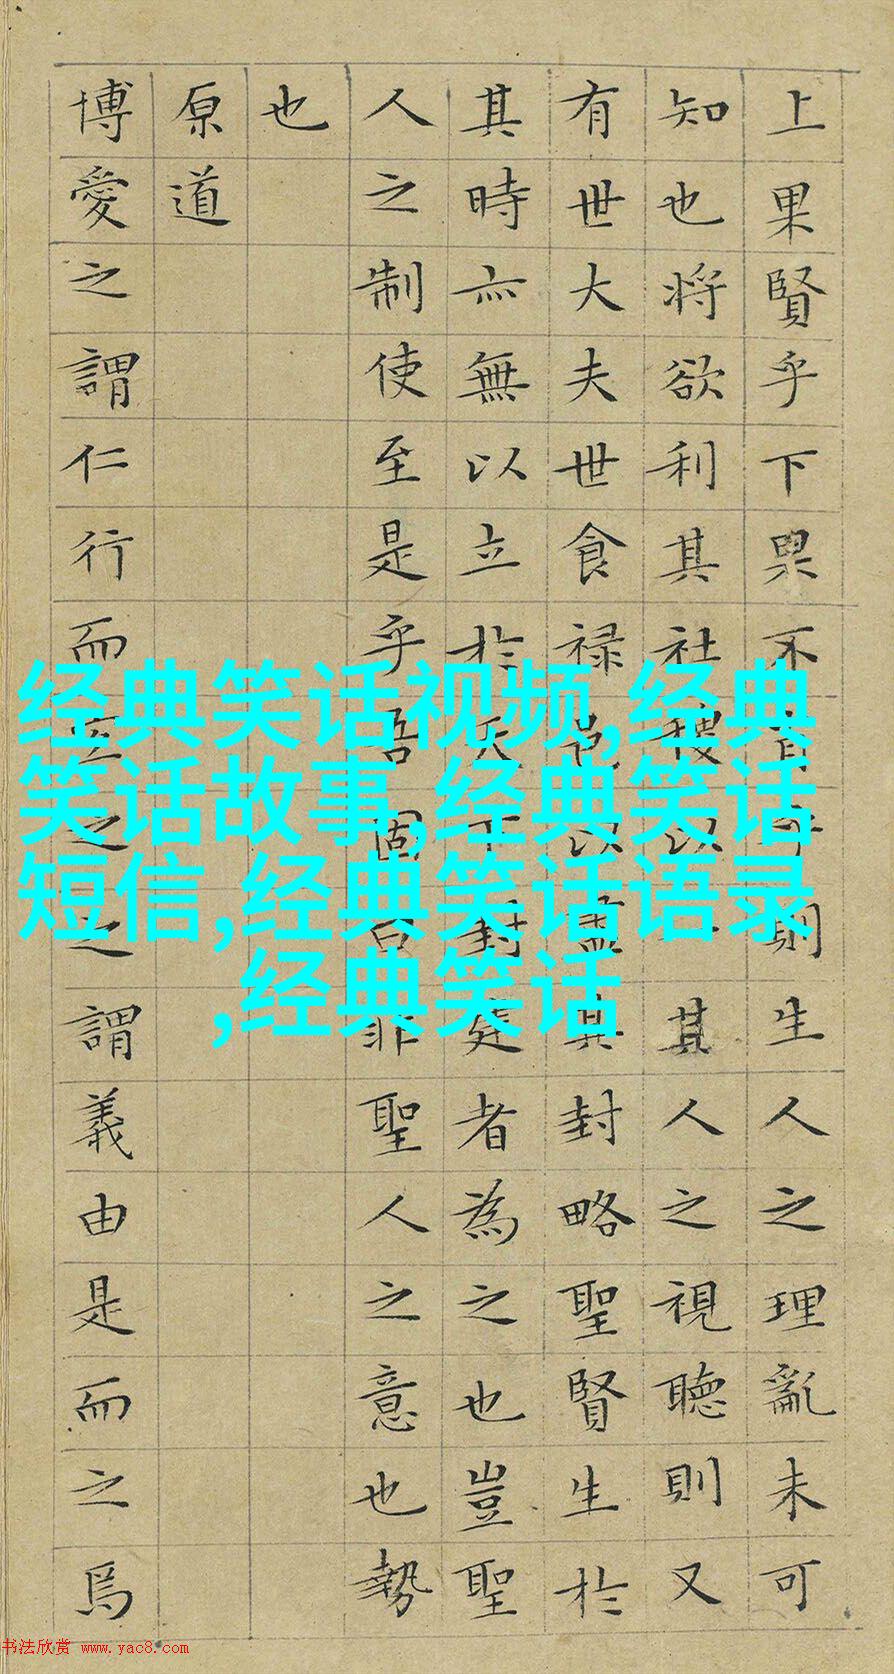 上果賢乎下果不肖乎則生人之理亂未可
知也將欲利其社稷以一其人之視聽則又
有世大夫世食禄邑以盡其封略聖賢生於
其時亦無以立於天下封建者為之也豈聖
人之制使至是乎吾固曰非聖人之意也勢
也
原道
博愛之謂仁行而宜之之謂義由是而之焉
经典笑话视频,经典
笑话故事,经典笑话
短信,经典笑话语录
,经典笑话
书法欣赏 www.yac8.com